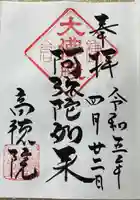 奉拝
令和五年
四月廿二日
大佛殿
阿弥陀如来
高徳院